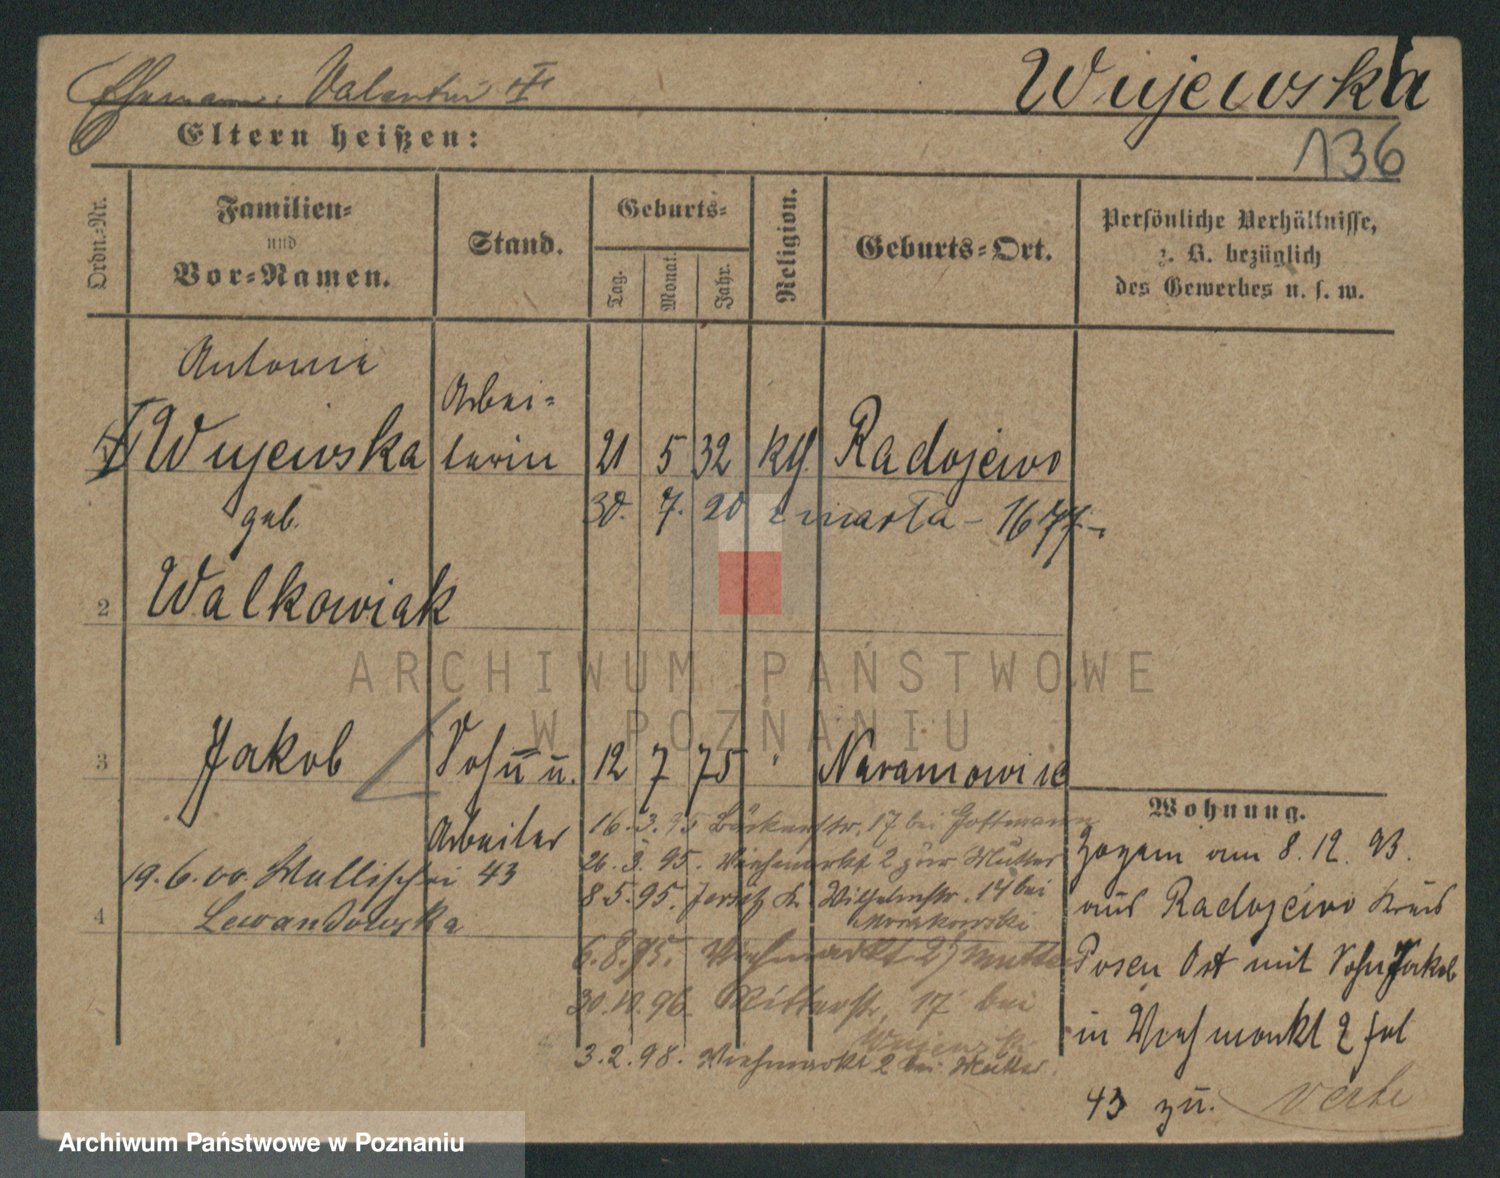 Ehemann: Valentin †
Wujewska
136
Eltern heißen:
Ordn.-Nr.
Familien-
und
Vor-Namen.
Stand.
Geburts-
Tag.
Monat.
Jahr.
Religion.
Geburts-Ort.
Persönliche Verhältnisse,
z. B. bezüglich
des Gewerbes u. s. w.
Antonie
Wujewska
geb.
Walkowiak
Arbei-
terin
21 5 32 kth. Radojewo
30. 7. 20 marta - 1677 -
2
3
Jakob
Sohn u.
Arbeiter
12 7 75 Naramowice
16.3.95 Bäckerstr. 17 bei Hoffmann
26.3.95. Viehmarkt 2 zur Mutter
8.5.95. Jersitz K. Wilhelmstr. 14 bei
6.8.95. Viehmarkt 2 Mutter
30.10.96. Ritterstr. 17 bei
Wujewski
3.2.98. Viehmarkt 2 bei Mutter
19.6.00. Wallischei 43
Lewandowska
4
Wohnung.
Zogen am 8.12.93.
aus Radojewo Kreis
Posen Ost mit Sohn Jakob
in Viehmarkt 2 fol
43 zu.
verte
ARCHIWUM PAŃSTWOWE
W POZNANIU
Archiwum Państwowe w Poznaniu